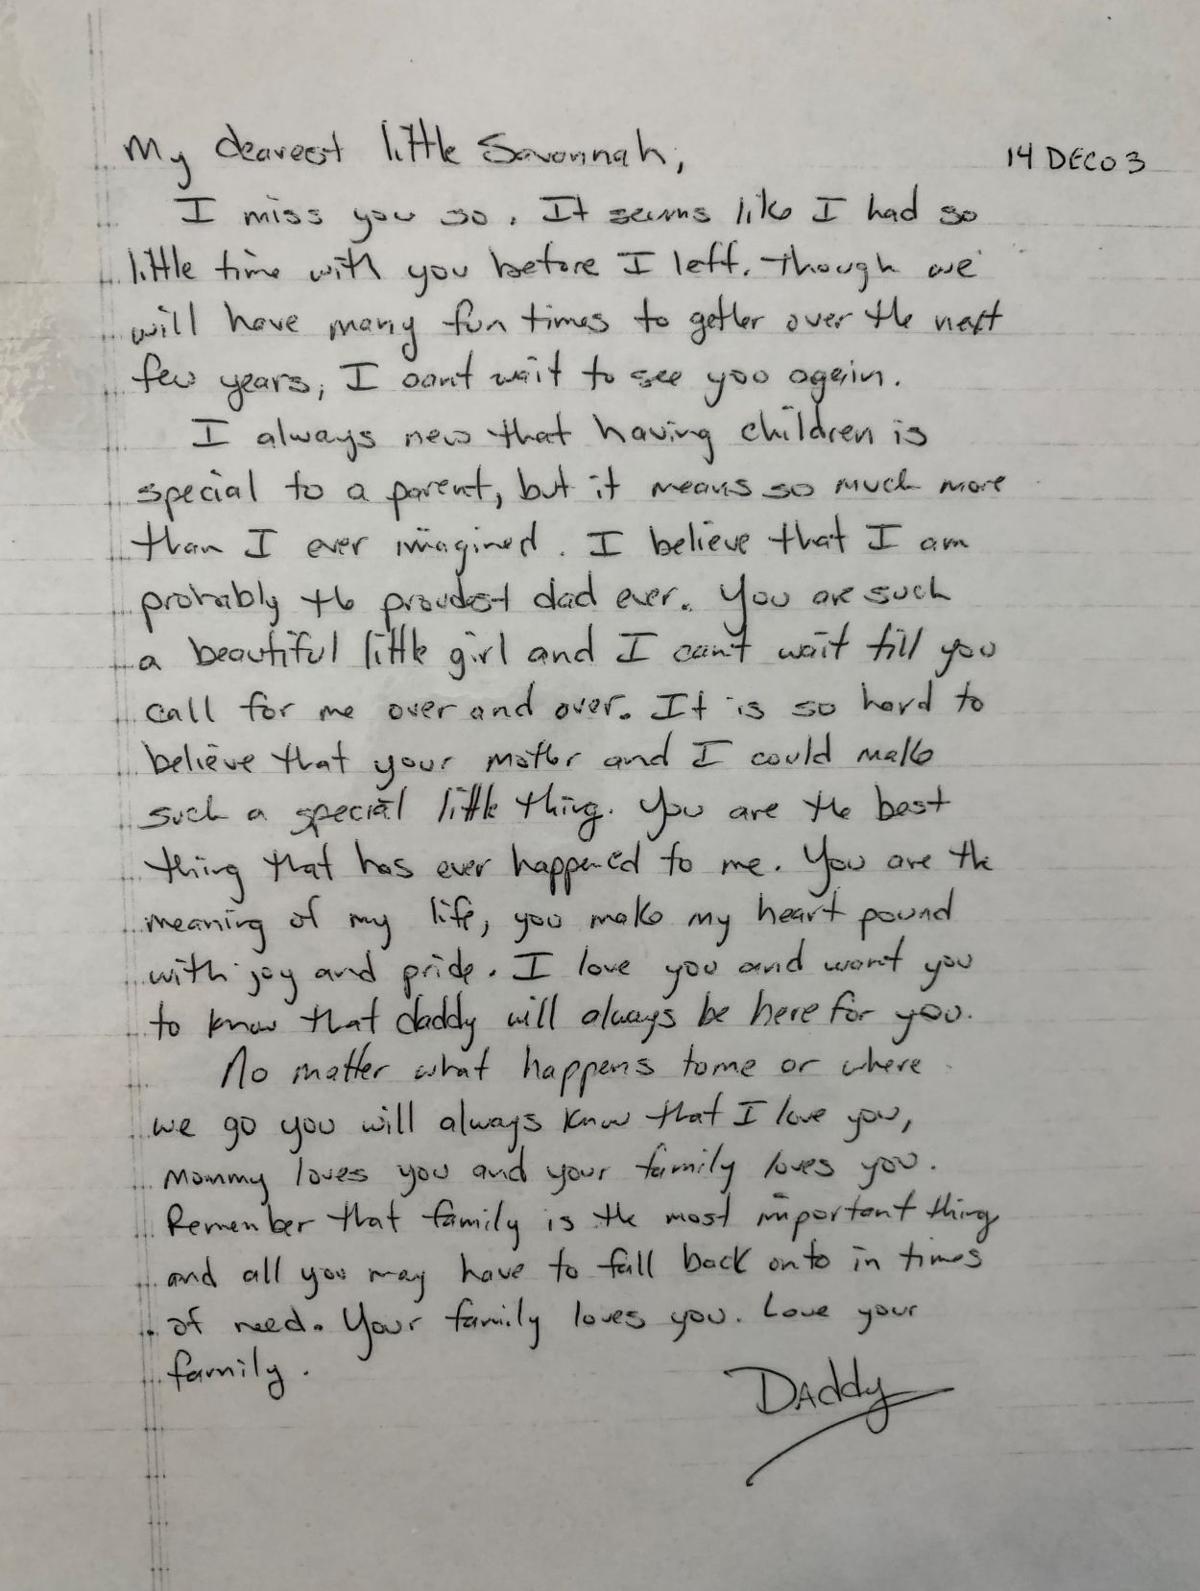 My dearest little Savannah,
14 DEC 03
I miss you so. It seems like I had so
little time with you before I left. Though we
will have many fun times to gether over the next
few years, I cant wait to see you again.
I always new that having children is
special to a parent, but it means so much more
than I ever imagined. I believe that I am
probably the proudest dad ever. You are such
a beautiful little girl and I can't wait till you
call for me over and over. It is so hard to
believe that your mother and I could make
such a special little thing. You are the best
thing that has ever happened to me. You are the
meaning of my life, you make my heart pound
with joy and pride. I love you and want you
to know that daddy will always be here for you.
No matter what happens to me or where
we go you will always know that I love you,
Mommy loves you and your family loves you.
Remember that family is the most important thing
and all you may have to fall back onto in times
of need. Your family loves you. Love your
family.
DAddy